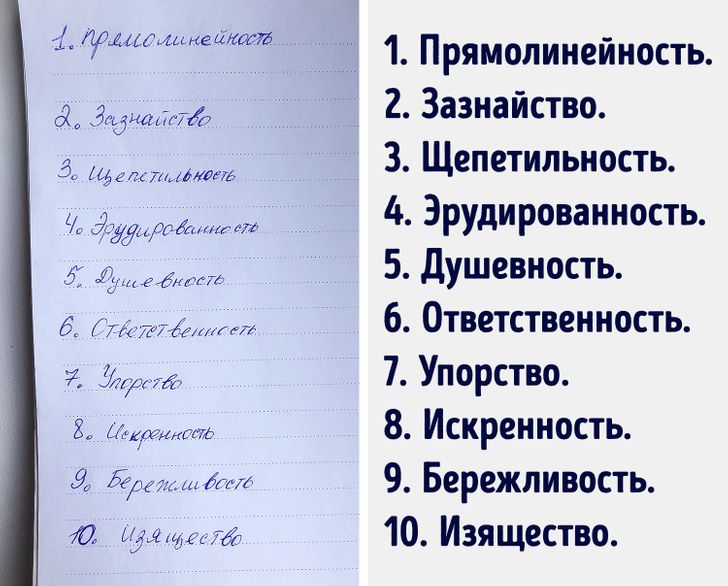 1. Прямолинейность
2. Зазнайство
3. Щепетильность
4. Эрудированность
5. Душевность
6. Ответственность
7. Упорство
8. Искренность
9. Бережливость
10. Изящество
1. Прямолинейность.
2. Зазнайство.
3. Щепетильность.
4. Эрудированность.
5. Душевность.
6. Ответственность.
7. Упорство.
8. Искренность.
9. Бережливость.
10. Изящество.